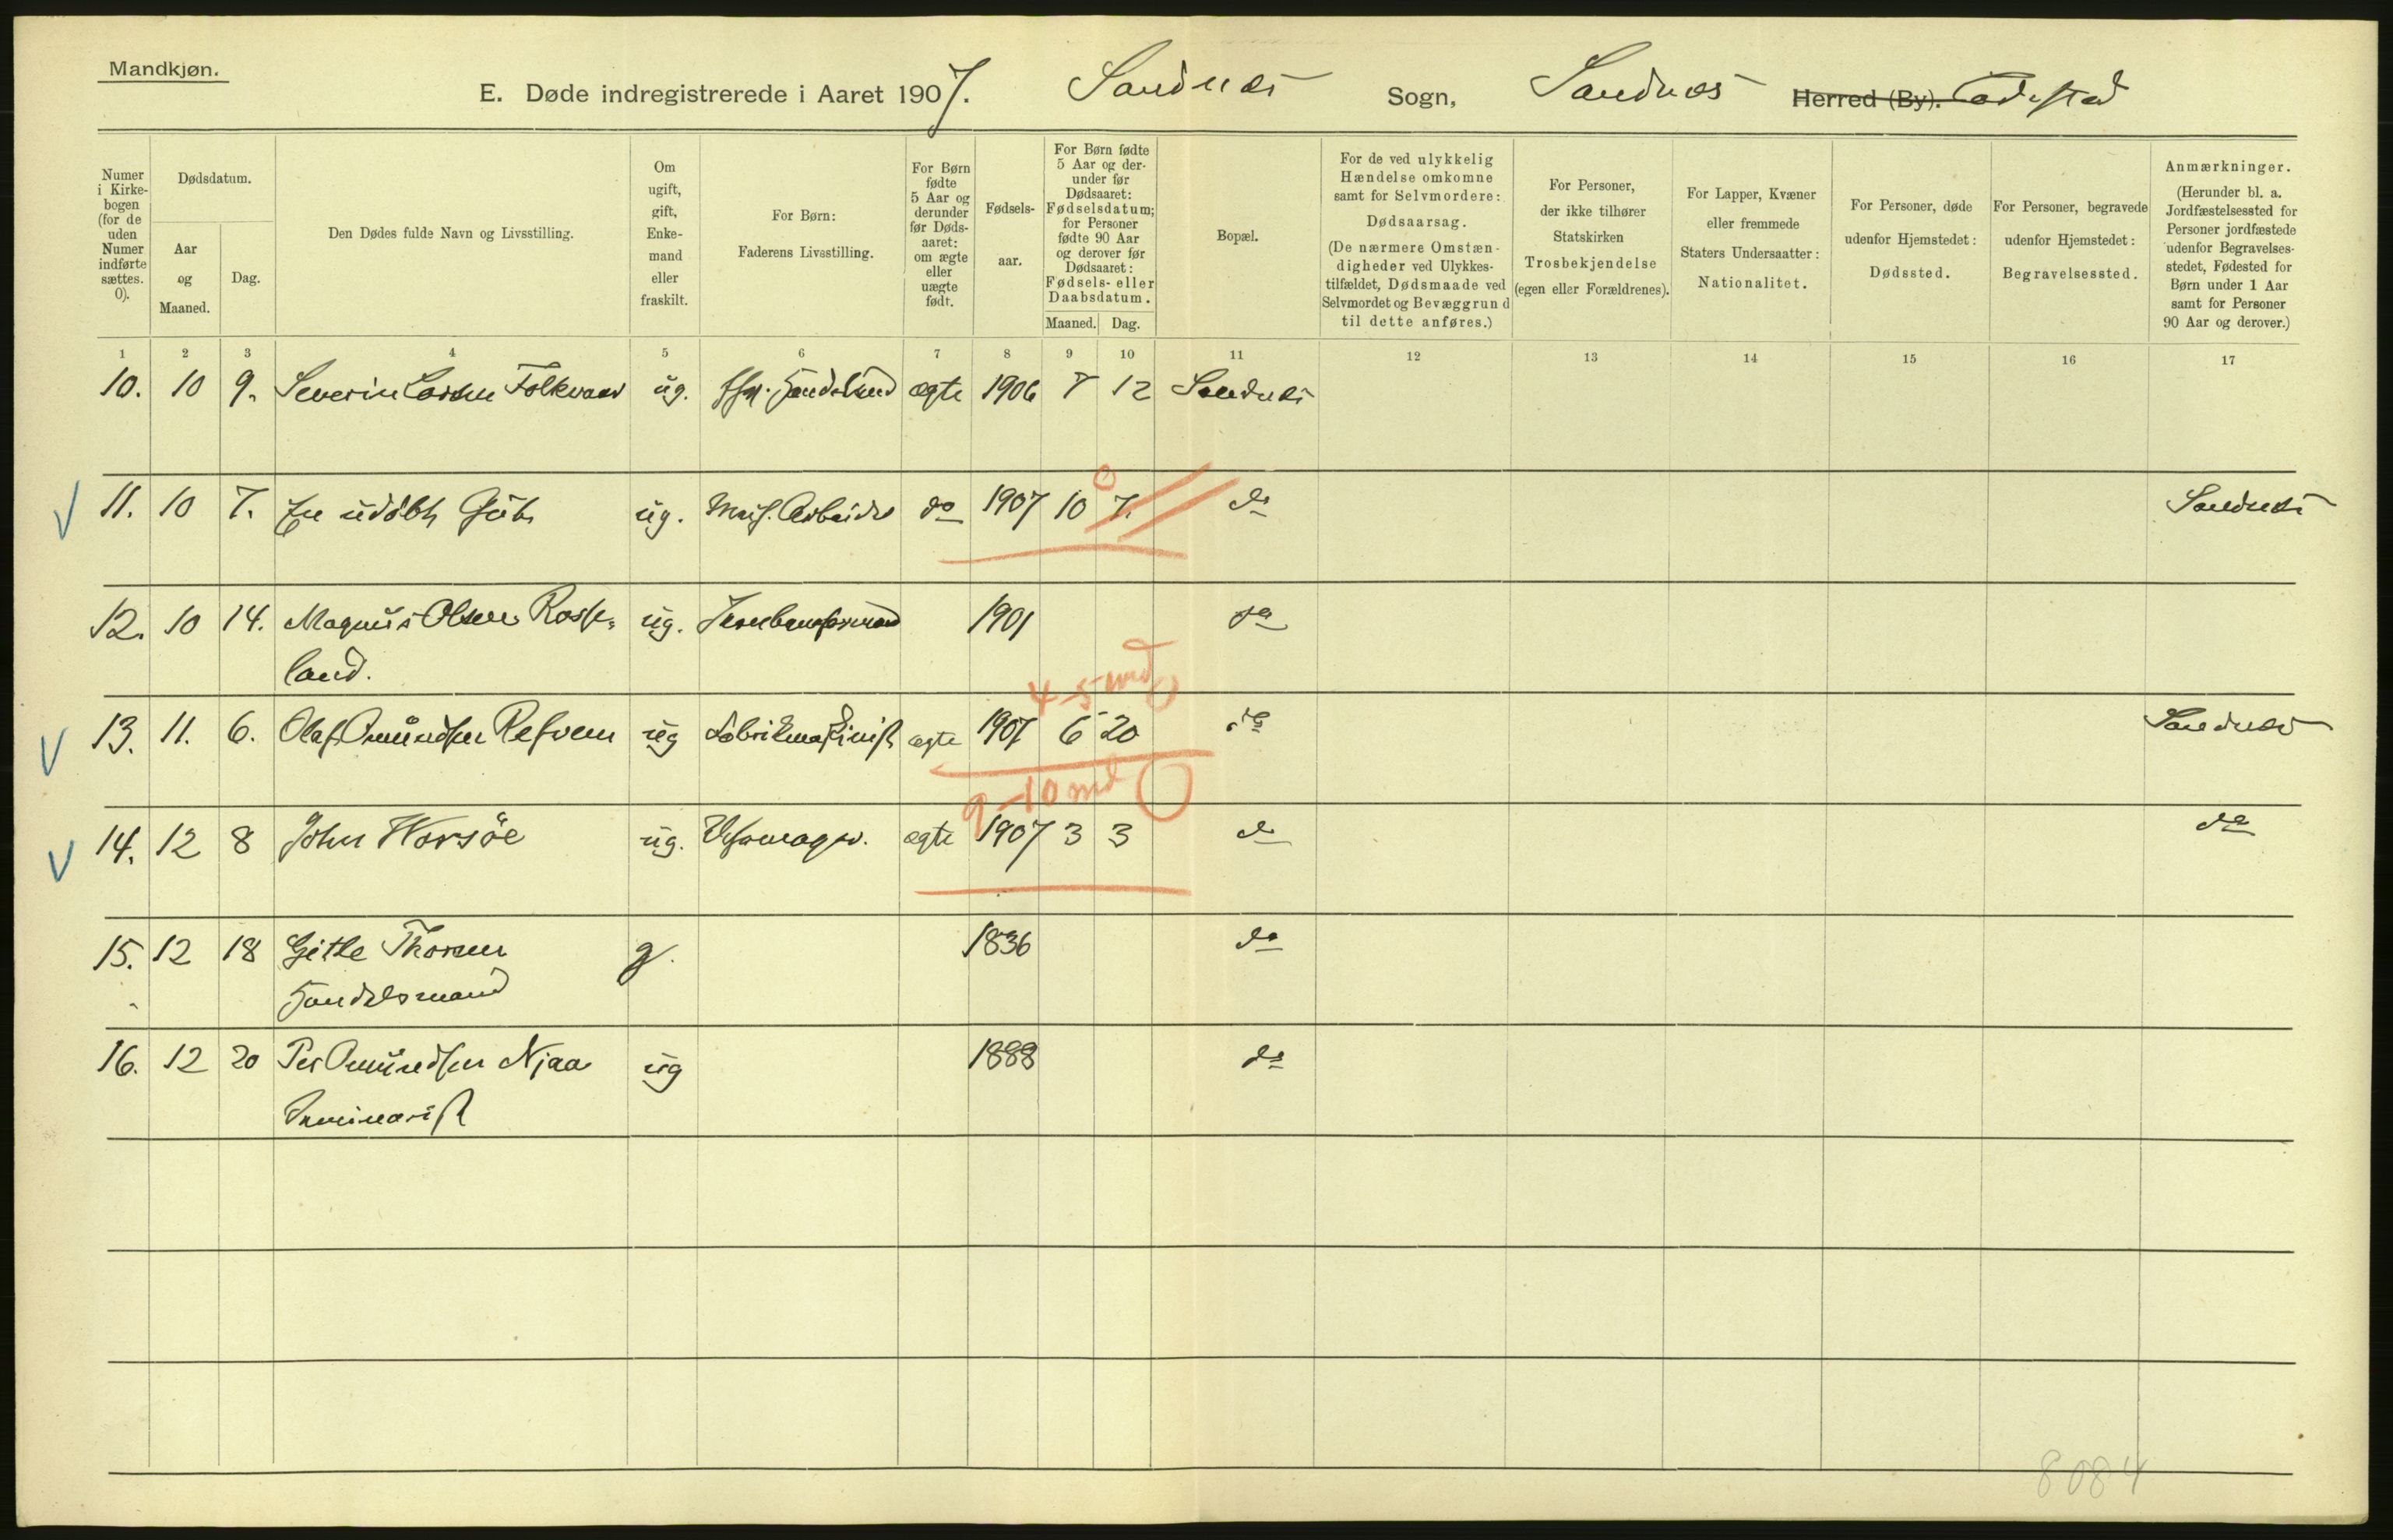 Mandkjøn.
E. Døde indregistrerede i Aaret 1907. Sandnes Sogn, Sandnes Herred (By). Ladested
Numer i Kirkebogen (for de uden Numer indførte sættes. 0).
Dødsdatum.
Aar og Maaned.
Dag.
Den Dødes fulde Navn og Livsstilling.
Om ugift, gift, Enkemand eller fraskilt.
For Børn: Faderens Livsstilling.
For Børn fødte 5 Aar og derunder før Dødsaaret: om ægte eller uægte født.
Fødselsaar.
For Børn fødte 5 Aar og derunder før Dødsaaret: Fødselsdatum; for Personer fødte 90 Aar og derover før Dødsaaret: Fødsels- eller Daabsdatum.
Maaned. Dag.
Bopæl.
For de ved ulykkelig Hændelse omkomne samt for Selvmordere: Dødsaarsag. (De nærmere Omstændigheder ved Ulykkestilfældet, Dødsmaade ved Selvmordet og Bevæggrund til dette anføres.)
For Personer, der ikke tilhører Statskirken Trosbekjendelse (egen eller Forældrenes).
For Lapper, Kvæner eller fremmede Staters Undersaatter: Nationalitet.
For Personer, døde udenfor Hjemstedet: Dødssted.
For Personer, begravede udenfor Hjemstedet: Begravelsessted.
Anmærkninger. (Herunder bl. a. Jordfæstelsessted for Personer jordfæstede udenfor Begravelsesstedet, Fødested for Børn under 1 Aar samt for Personer 90 Aar og derover.)
1 2 3 4 5 6 7 8 9 10 11 12 13 14 15 16 17
10. 10 9. Severin Larsen Folkvord ug. ægte 1906 7 12 Sandnes
11. 10 7. En udøbt Gut ug. Arbeider do 1907 10 7. do Sandnes
12. 10 14. Magnus Olsen Rosse- ug. 1901 do
land.
4-5 md
13. 11. 6. Olaf Omundsen Refvem ug Fabrikmaskinist ægte 1907 6 20 do Sandnes
9-10 md
14. 12 8 John Worsöe ug. ægte 1907 3 3 do do
15. 12 18 Gitle Thorsen g. 1836 do
Handelsmand
16. 12 20 Per Omundsen Njaa ug 1888 do
Seminarist
8084